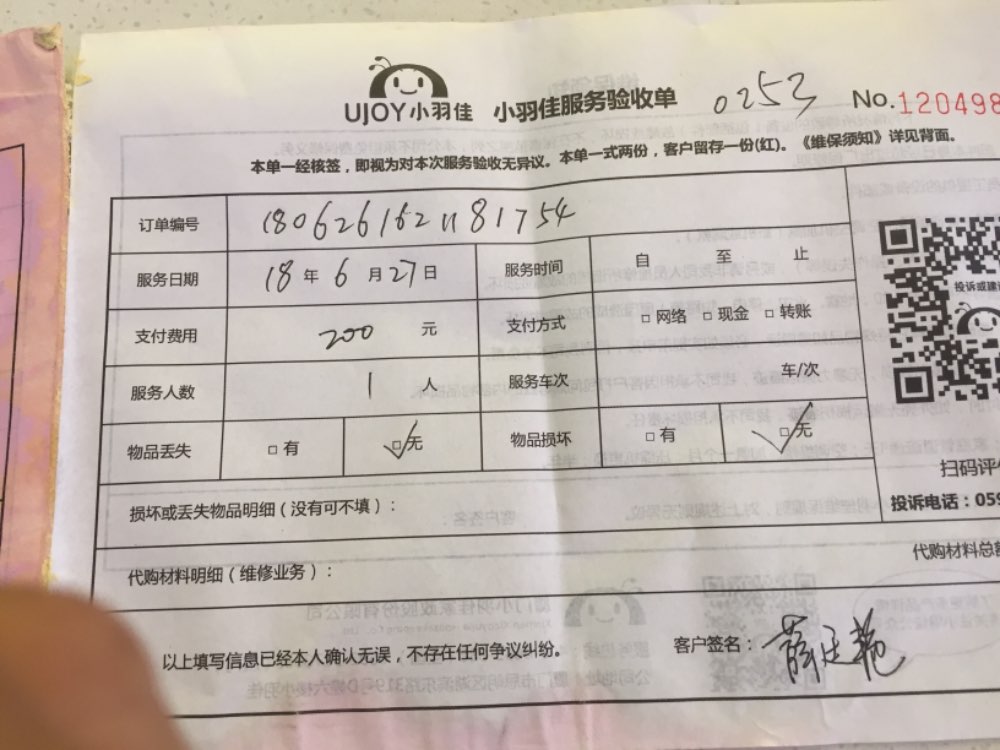 UJOY小羽佳 小羽佳服务验收单 0253 No.120498
本单一经核签，即视为对本次服务验收无异议。本单一式两份，客户留存一份(红)。《维保须知》详见背面。
订单编号 180626162118 1754
服务日期 18 年 6 月 27 日 服务时间 自 至 止
投诉或建议
支付费用 200 元 支付方式 □ 网络 □ 现金 □ 转账
服务人数 1 人 服务车次 车/次
物品丢失 □ 有 ☑ 无 物品损坏 □ 有 ☑ 无
扫码评价
损坏或丢失物品明细（没有可不填）：
投诉电话：059
代购材料明细（维修业务）： 代购材料总额
以上填写信息已经本人确认无误，不存在任何争议纠纷。 客户签名：薛廷艳